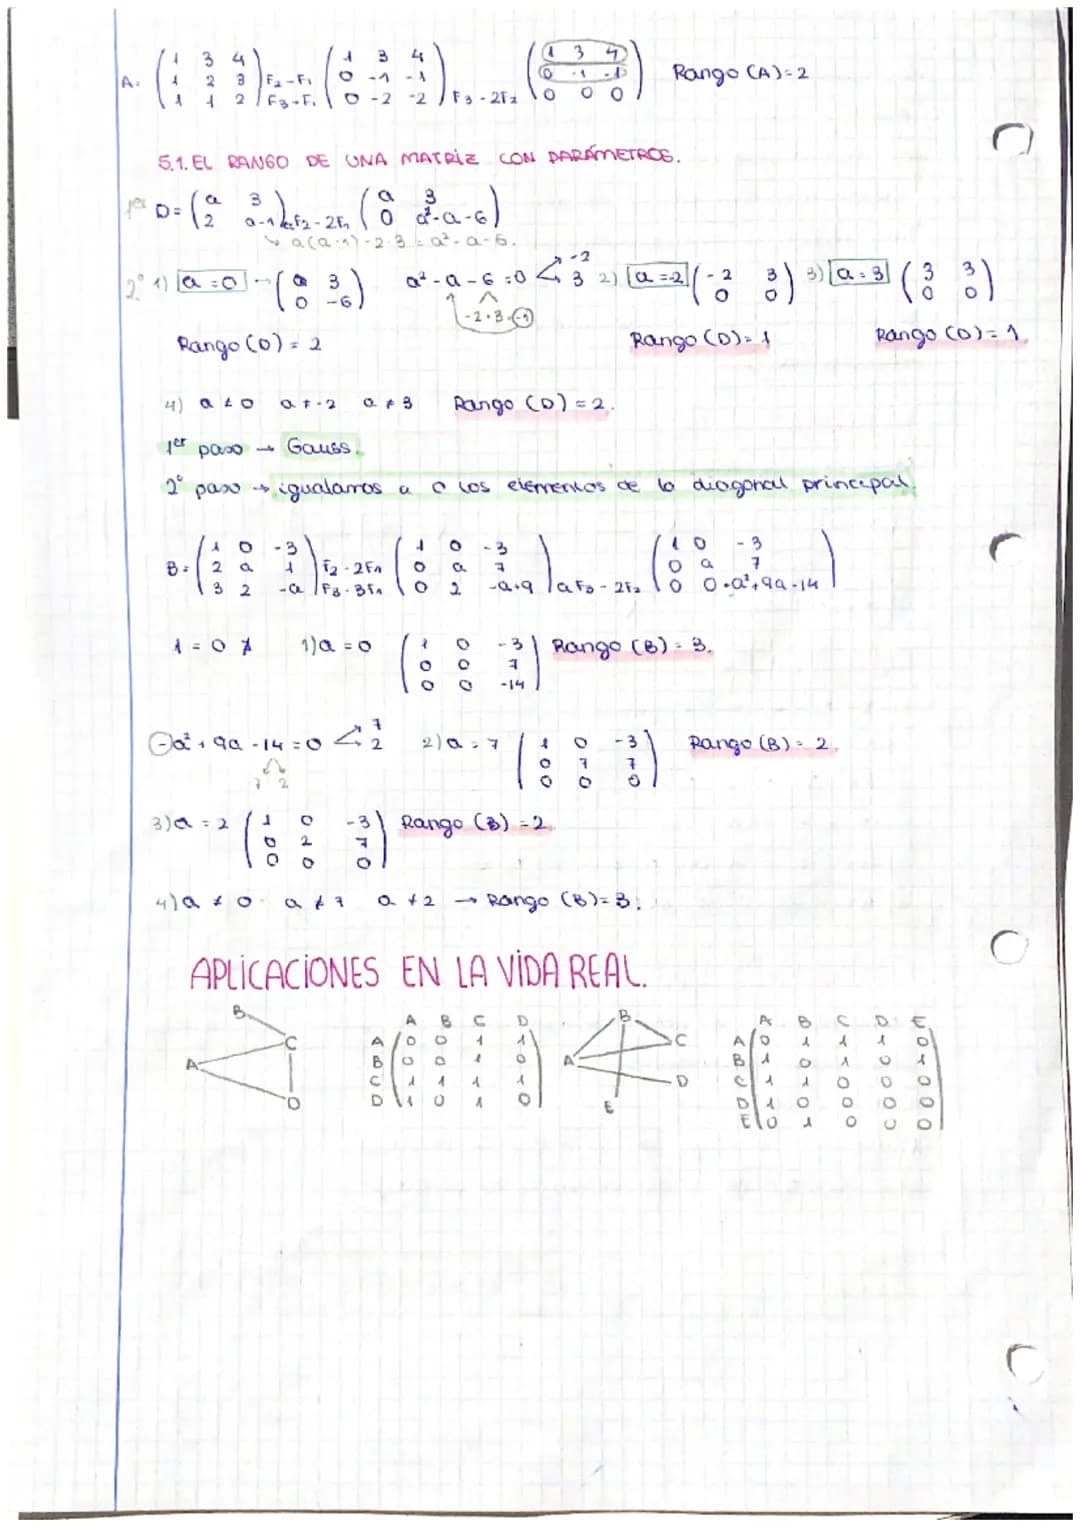 A= (1 3 4 / 1 2 3 / 1 1 2) F2-F1 F3-F1 (1 3 4 / 0 -1 -1 / 0 -2 -2) F3-2F2 (1 3 4 / 0 -1 -1 / 0 0 0) Rango (A)=2
5.1. EL RANGO DE UNA MATRIZ CON PARÁMETROS.
1er D= (a 3 / 2 a-1) aF2-2F1 (a 3 / 0 a²-a-6)
a(a-1)-2·3 = a²-a-6.
2º 1) a=0 → (0 3 / 0 -6) a²-a-6=0 -2 3 2) a=-2 (-2 3 / 0 0) 3) a=3 (3 3 / 0 0)
-2·3·(-1)
Rango (D) = 2 Rango (D)= 1 Rango (D)= 1.
4) a≠0 a≠-2 a≠3 Rango (D) = 2.
1er paso → Gauss.
2º paso → igualamos a 0 los elementos de la diagonal principal.
B= (1 0 -3 / 2 a 1 / 3 2 -a) F2-2F1 F3-3F1 (1 0 -3 / 0 a 7 / 0 2 -a+9) aF3-2F2 (1 0 -3 / 0 a 7 / 0 0 -a²+9a-14)
1=0 ∄ 1) a=0 (1 0 -3 / 0 0 7 / 0 0 -14) Rango (B) = 3.
-a²+9a-14=0 7 2 2) a=7 (1 0 -3 / 0 7 7 / 0 0 0) Rango (B) = 2.
7 2
3) a=2 (1 0 -3 / 0 2 7 / 0 0 0) Rango (B) = 2.
4) a≠0 a≠7 a≠2 → Rango (B)=3.
APLICACIONES EN LA VIDA REAL.
B C A D
A B C D
A (0 0 1 1
B 0 0 1 0
C 1 1 1 1
D 1 0 1 0)
B C A D E
A B C D E
A (0 1 1 1 0
B 1 0 1 0 1
C 1 1 0 0 0
D 1 0 0 0 0
E 0 1 0 0 0)